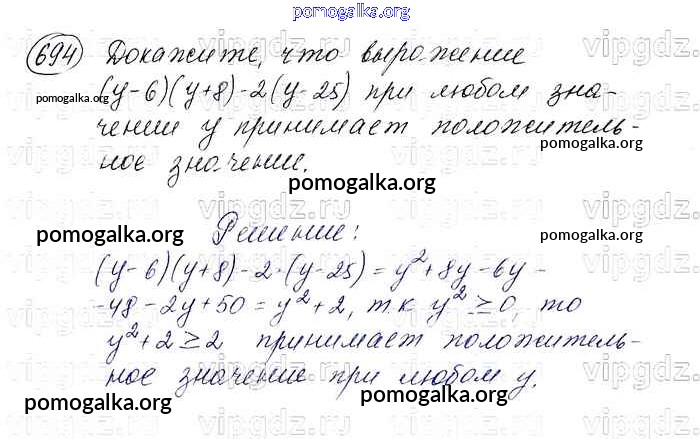 pomogalka.org
694 Докажите, что выражение
pomogalka.org (y-6)(y+8)-2(y-25) при любом зна-
чении y принимает положитель-
ное значение.
pomogalka.org
vipgdz.ru
pomogalka.org Решение! pomogalka.org
(y-6)(y+8)-2·(y-25)=y²+8y-6y-
-48-2y+50=y²+2, т.к y²≥0, то
y²+2≥2 принимает положитель-
ное значение при любом y.
pomogalka.org pomogalka.org